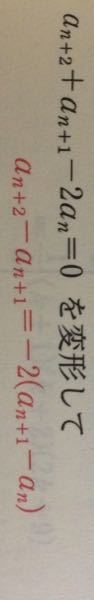 aₙ₊₂+aₙ₊₁−2aₙ=0 を変形して
aₙ₊₂−aₙ₊₁=−2(aₙ₊₁−aₙ)